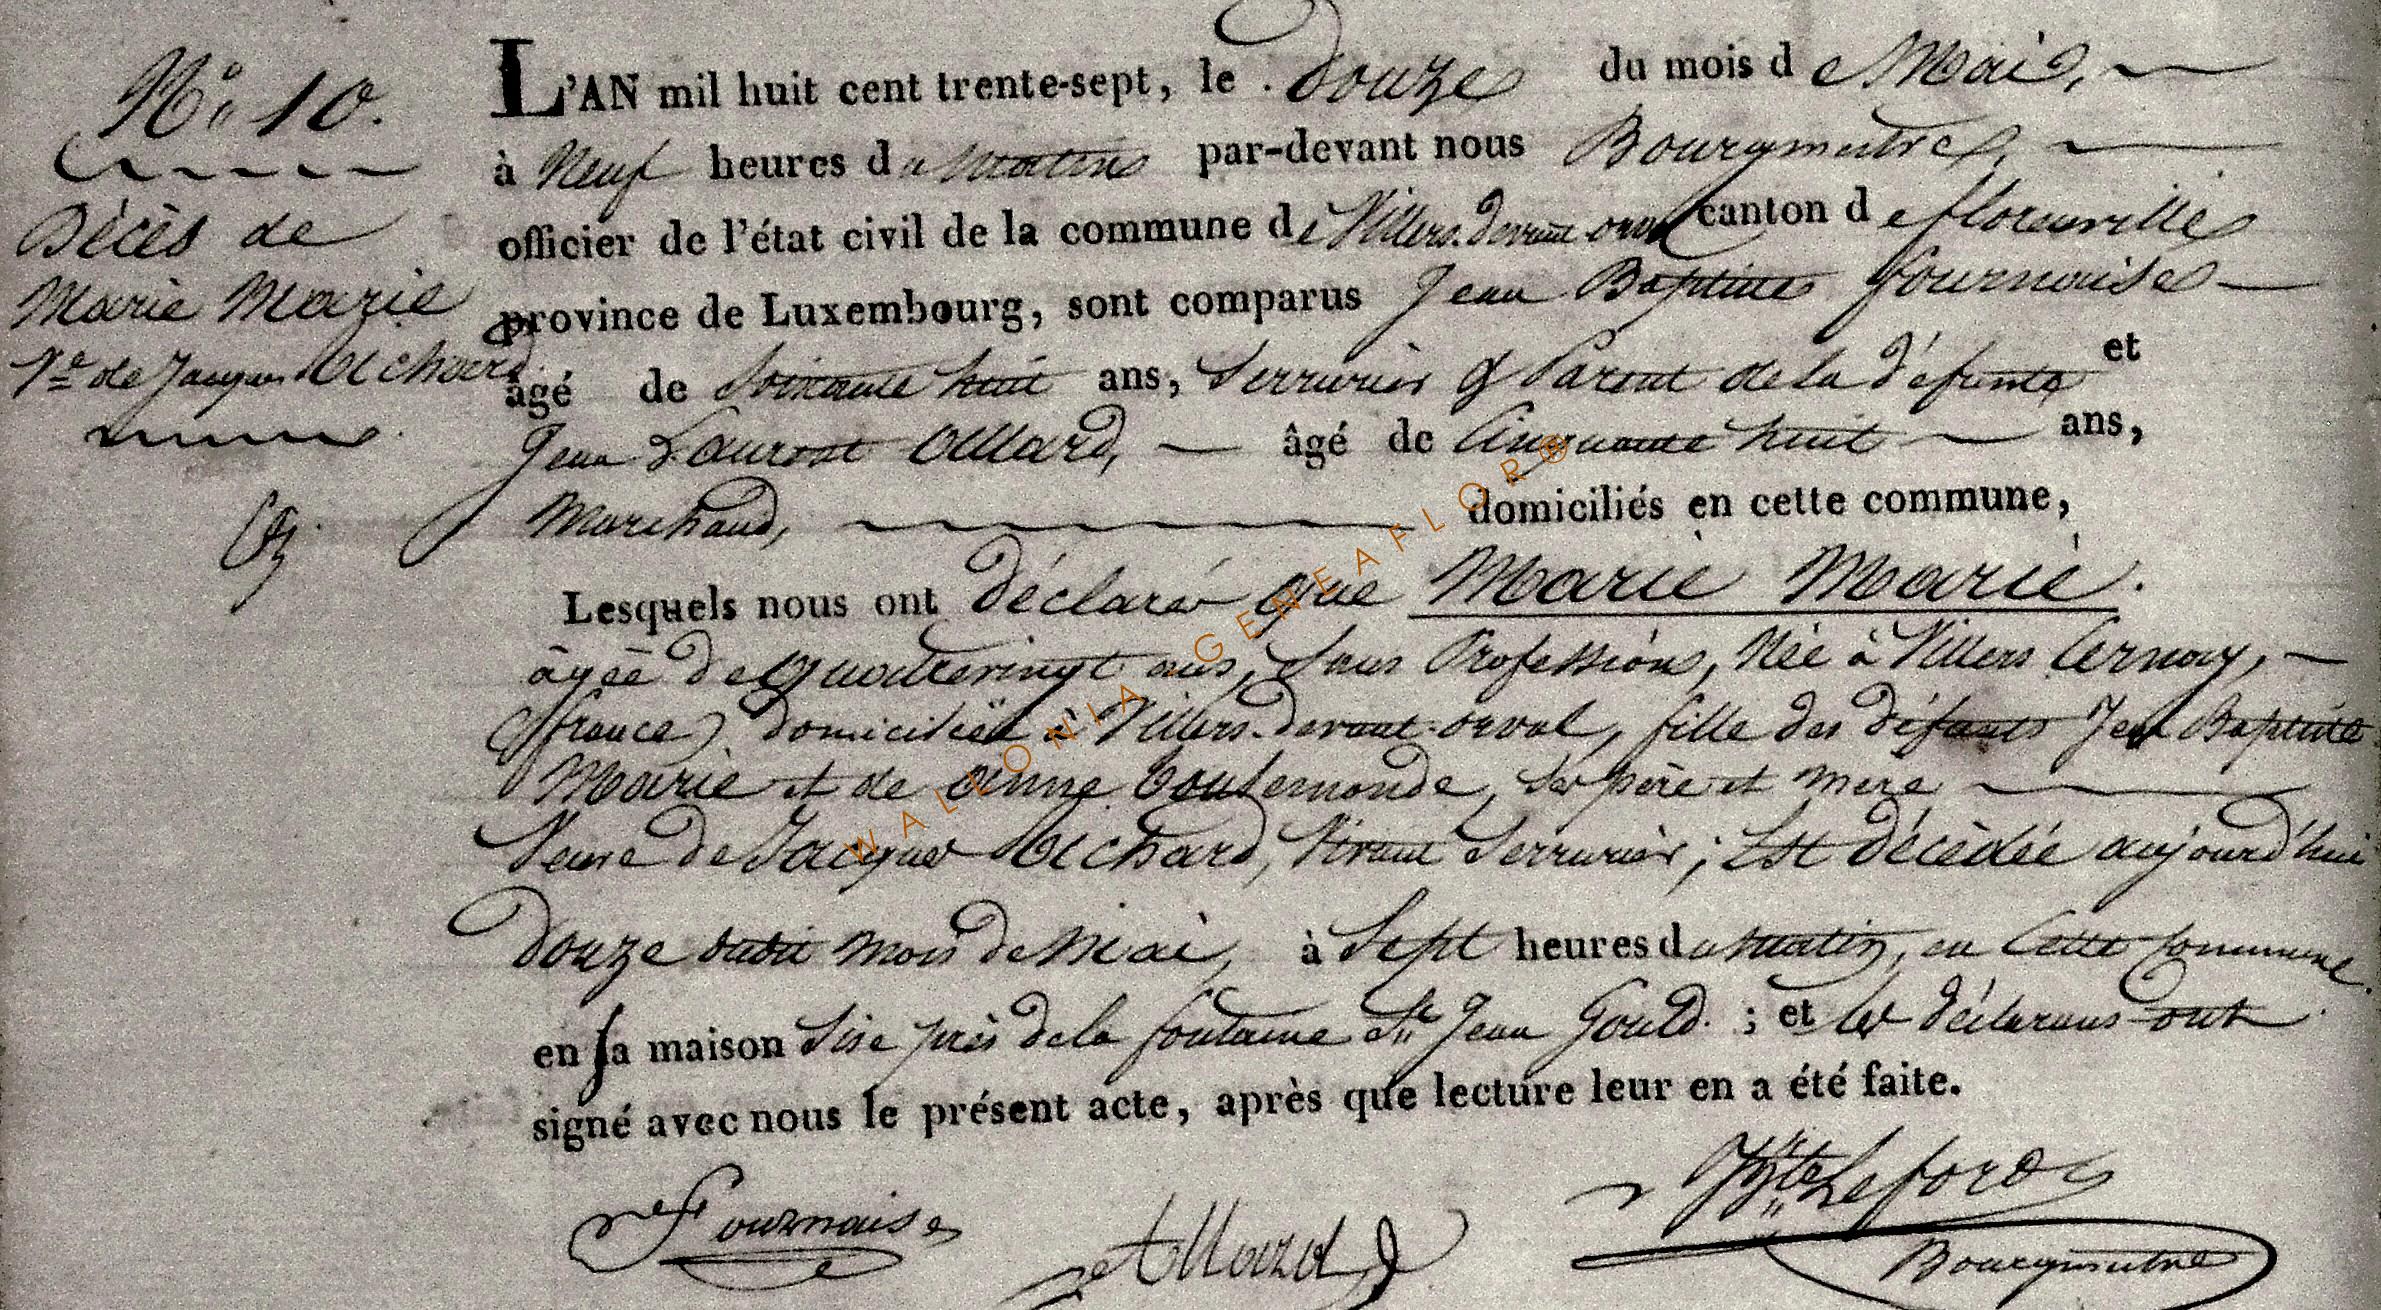 N° 10.
Décès de
Marie Marie
Ve de Jacques Richard
L'AN mil huit cent trente-sept, le douze du mois de Mai,
à Neuf heures du Matin par-devant nous Bourgmestre,
officier de l'état civil de la commune de Villers-devant-orval canton de florenville
province de Luxembourg, sont comparus Jean Baptiste fournaise
âgé de Soixante huit ans, Serrurier & Parent de la défunte et
Jean Laurent Allard, âgé de Cinquante huit ans,
Marchand, domiciliés en cette commune,
Lesquels nous ont déclaré que Marie Marie.
âgée de quatrevingt ans, Sans Profession, Née à Villers Cernay,
(france) domiciliée à Villers-devant-orval, fille des défunts Jean Baptiste
Marie et de Anne Toutlemonde, Ses père et mère
Veuve de Jacques Richard, Vivant Serrurier; Est décédée aujourd'hui
douze dudit mois de Mai, à Sept heures du Matin, en Cette Commune
en sa maison Sise près de la fontaine St Jean ; et les déclarans ont
signé avec nous le présent acte, après que lecture leur en a été faite.
Fournaise
Allard
Hyte Leford
Bourgmestre
WALLONIA GENEAFLOR®